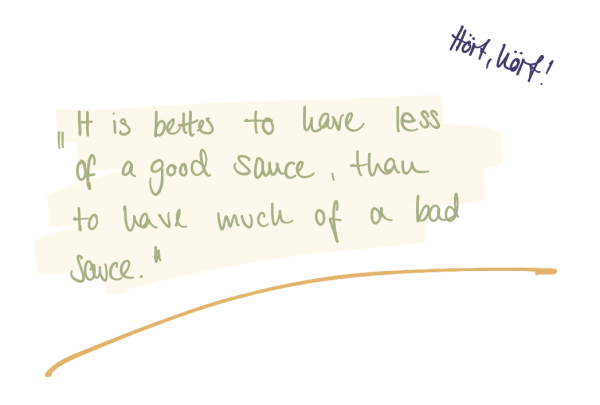 Hört, hört!
"It is better to have less
of a good sauce, than
to have much of a bad
sauce."